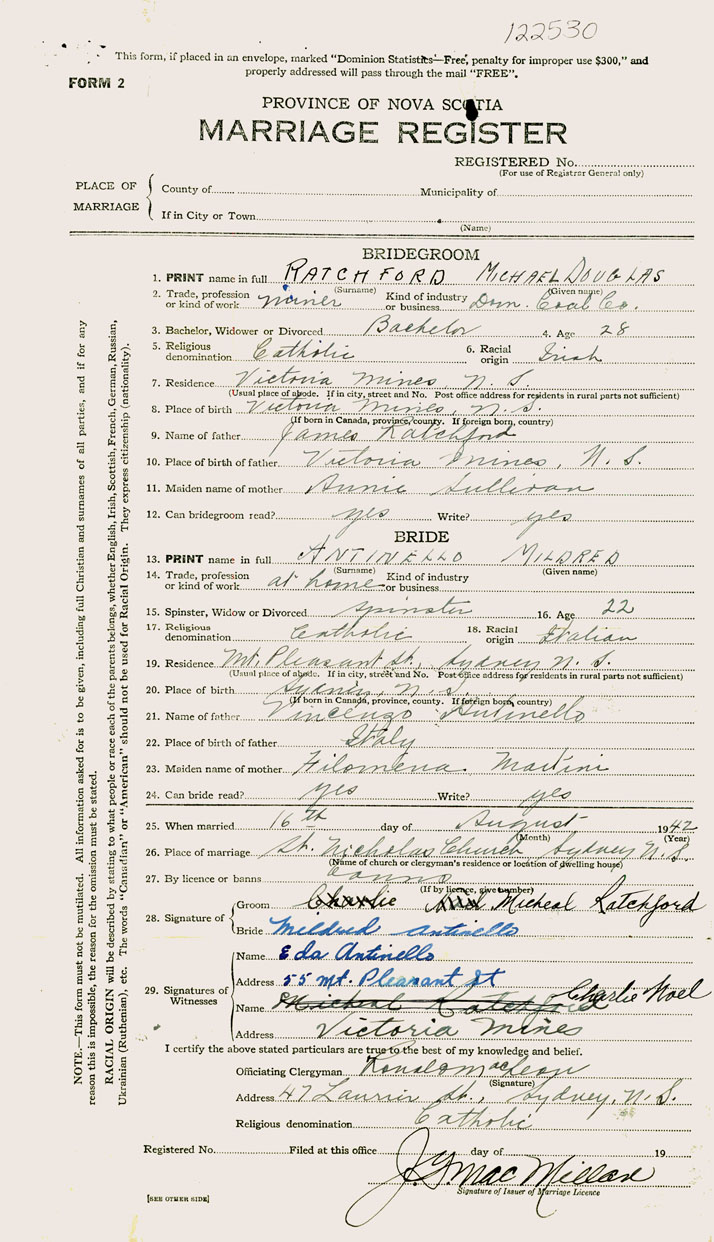 122530
This form, if placed in an envelope, marked "Dominion Statistics—Free, penalty for improper use $300," and
properly addressed will pass through the mail "FREE".
FORM 2
PROVINCE OF NOVA SCOTIA
MARRIAGE REGISTER
REGISTERED No.
(For use of Registrar General only)
PLACE OF MARRIAGE
County of Municipality of
If in City or Town
(Name)
BRIDEGROOM
1. PRINT name in full RATCHFORD MICHAEL DOUGLAS
(Surname) (Given name)
2. Trade, profession or kind of work miner Kind of industry or business Dom. Coal Co.
3. Bachelor, Widower or Divorced Bachelor 4. Age 28
5. Religious denomination Catholic 6. Racial origin Irish
7. Residence Victoria Mines, N. S.
(Usual place of abode. If in city, street and No. Post office address for residents in rural parts not sufficient)
8. Place of birth Victoria Mines, N. S.
(If born in Canada, province, county. If foreign born, country)
9. Name of father James Ratchford
10. Place of birth of father Victoria Mines, N. S.
11. Maiden name of mother Annie Sullivan
12. Can bridegroom read? yes Write? yes
BRIDE
13. PRINT name in full ANTINELLO MILDRED
(Surname) (Given name)
14. Trade, profession or kind of work at home Kind of industry or business
15. Spinster, Widow or Divorced Spinster 16. Age 22
17. Religious denomination Catholic 18. Racial origin Italian
19. Residence Mt. Pleasant St., Sydney N. S.
(Usual place of abode. If in city, street and No. Post office address for residents in rural parts not sufficient)
20. Place of birth Sydney, N. S.
(If born in Canada, province, county. If foreign born, country)
21. Name of father Vincenzo Antinello
22. Place of birth of father Italy
23. Maiden name of mother Filomena Martini
24. Can bride read? yes Write? yes
25. When married 16th day of August 1942
(Month) (Year)
26. Place of marriage St. Nicholas Church Sydney N.S.
(Name of church or clergyman's residence or location of dwelling house)
27. By licence or banns banns
(If by licence, give number)
28. Signature of
Groom Charlie Noel Micheal Ratchford
Bride Mildred Antinello
29. Signatures of Witnesses
Name Eda Antinello
Address 55 Mt. Pleasant St
Name Micheal Ratchford Charlie Noel
Address Victoria Mines
I certify the above stated particulars are true to the best of my knowledge and belief.
Officiating Clergyman Ronald MacLean
(Signature)
Address 47 Laurier St., Sydney, N. S.
Religious denomination Catholic
Registered No. Filed at this office day of 19
J. G. MacMillan
Signature of Issuer of Marriage Licence
[SEE OTHER SIDE]
NOTE.—This form must not be mutilated. All information asked for is to be given, including full Christian and surnames of all parties, and if for any
reason this is impossible, the reason for the omission must be stated.
RACIAL ORIGIN will be described by stating to what people or race each of the parents belongs, whether English, Irish, Scottish, French, German, Russian,
Ukrainian (Ruthenian), etc. The words "Canadian" or "American" should not be used for Racial Origin. They express citizenship (nationality).